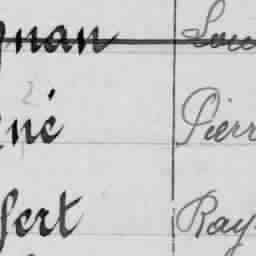 gnan Lou
né Pierr
fert Ray